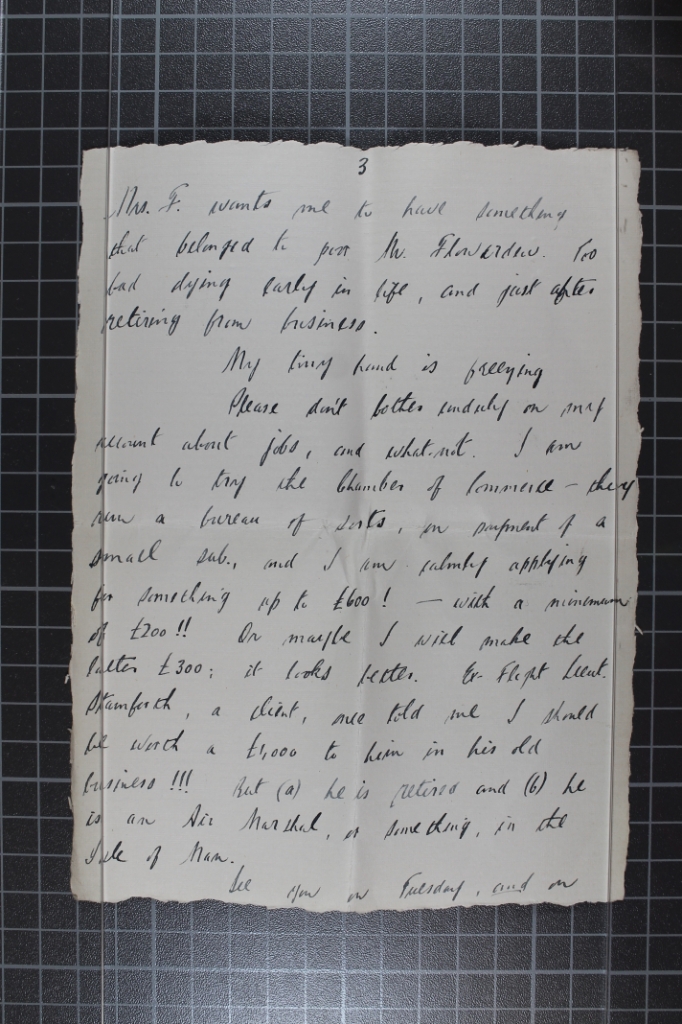 3
Mrs. F. wants me to have something
that belonged to poor Mr. Flowerdew. Too
bad dying early in life, and just after
retiring from business.
My tiny hand is freezing
Please don't bother unduly on my
account about jobs, and what-not. I am
going to try the Chamber of Commerce – they
run a bureau of sorts, on payment of a
small sub., and I am calmly applying
for something up to £600! – with a minimum
of £200!! Or maybe I will make the
latter £300: it looks better. Ex-Flight Lieut.
Stamforth, a client, once told me I should
be worth a £1,000 to him in his old
business!!! But (a) he is retired and (b) he
is an Air Marshal, or something, in the
Isle of Man.
See you on Tuesday, and on